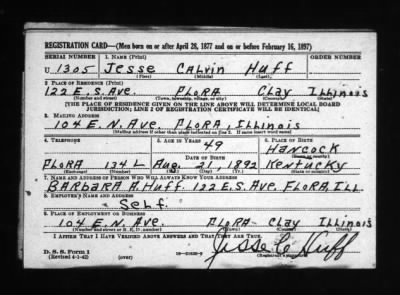 REGISTRATION CARD—(Men born on or after April 28, 1877 and on or before February 16, 1897)
SERIAL NUMBER 1. NAME (Print) ORDER NUMBER
U 1305 Jesse Calvin Huff
(First) (Middle) (Last)
2. PLACE OF RESIDENCE (Print)
122 E. S. Ave. Flora Clay Illinois
(Number and street) (Town, township, village, or city) (County) (State)
[THE PLACE OF RESIDENCE GIVEN ON THE LINE ABOVE WILL DETERMINE LOCAL BOARD
JURISDICTION; LINE 2 OF REGISTRATION CERTIFICATE WILL BE IDENTICAL]
3. MAILING ADDRESS
104 E. N. Ave Flora, Illinois
[Mailing address if other than place indicated on line 2. If same insert word same]
4. TELEPHONE 5. AGE IN YEARS 49 6. PLACE OF BIRTH
DATE OF BIRTH Hancock
Flora 134 L Aug. 21, 1892 Kentucky
7. NAME AND ADDRESS OF PERSON WHO WILL ALWAYS KNOW YOUR ADDRESS
Barbara A. Huff. 122 E. S. Ave. Flora, Ill.
8. EMPLOYER'S NAME AND ADDRESS
Self.
9. PLACE OF EMPLOYMENT OR BUSINESS
104 E. N. Ave. Flora- Clay Illinois
(Number and street or R. F. D. number) (Town) (County) (State)
I AFFIRM THAT I HAVE VERIFIED ABOVE ANSWERS AND THAT THEY ARE TRUE.
D. S. S. Form 1
(Revised 4-1-42) (over) Jesse C Huff